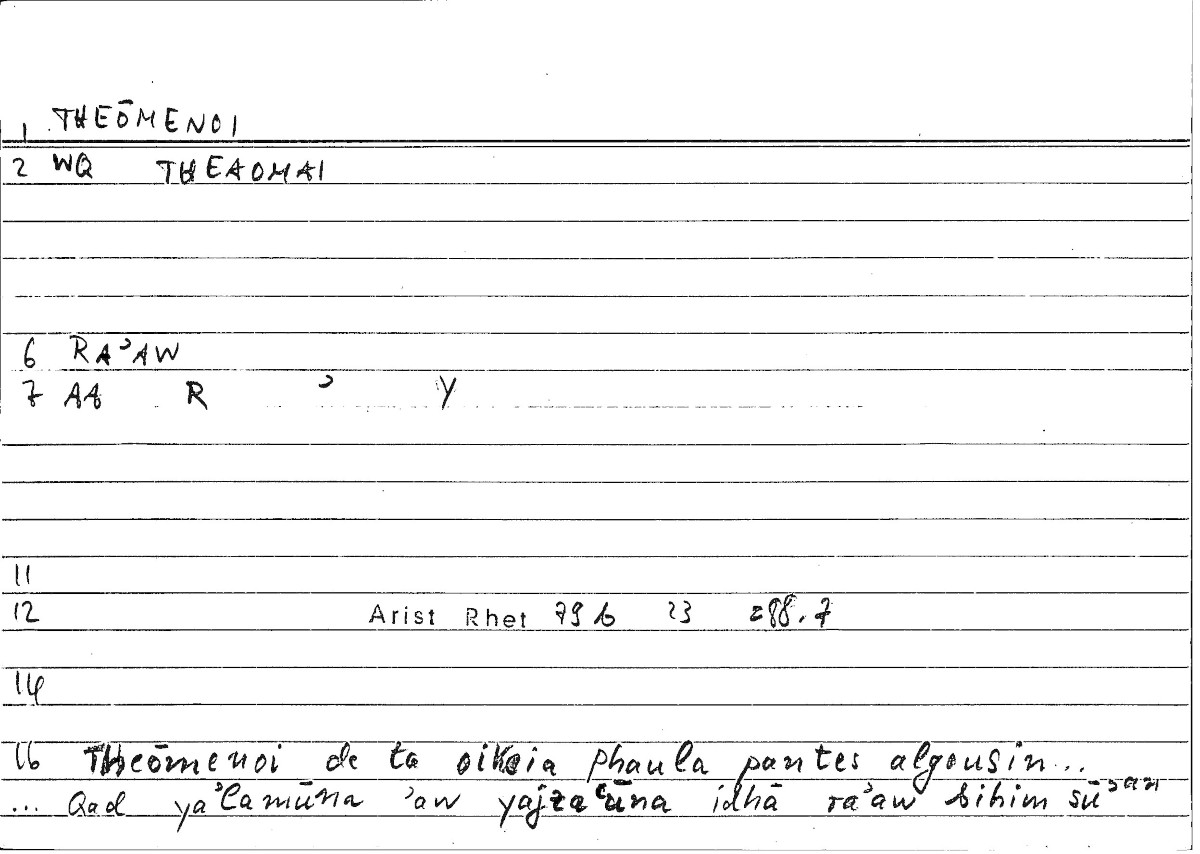 1 THEŌMENOI
2 WQ THEAOMAI
6 RAʾAW
7 AA R ʾ Y
11
12 Arist Rhet 79b 23 =88.7
14
16 Theōmenoi de ta oikeia phaula pantes algousin...
... Qad yaʾlamūna ʾaw yajzaʿūna idhā raʾaw bihim sūʾan